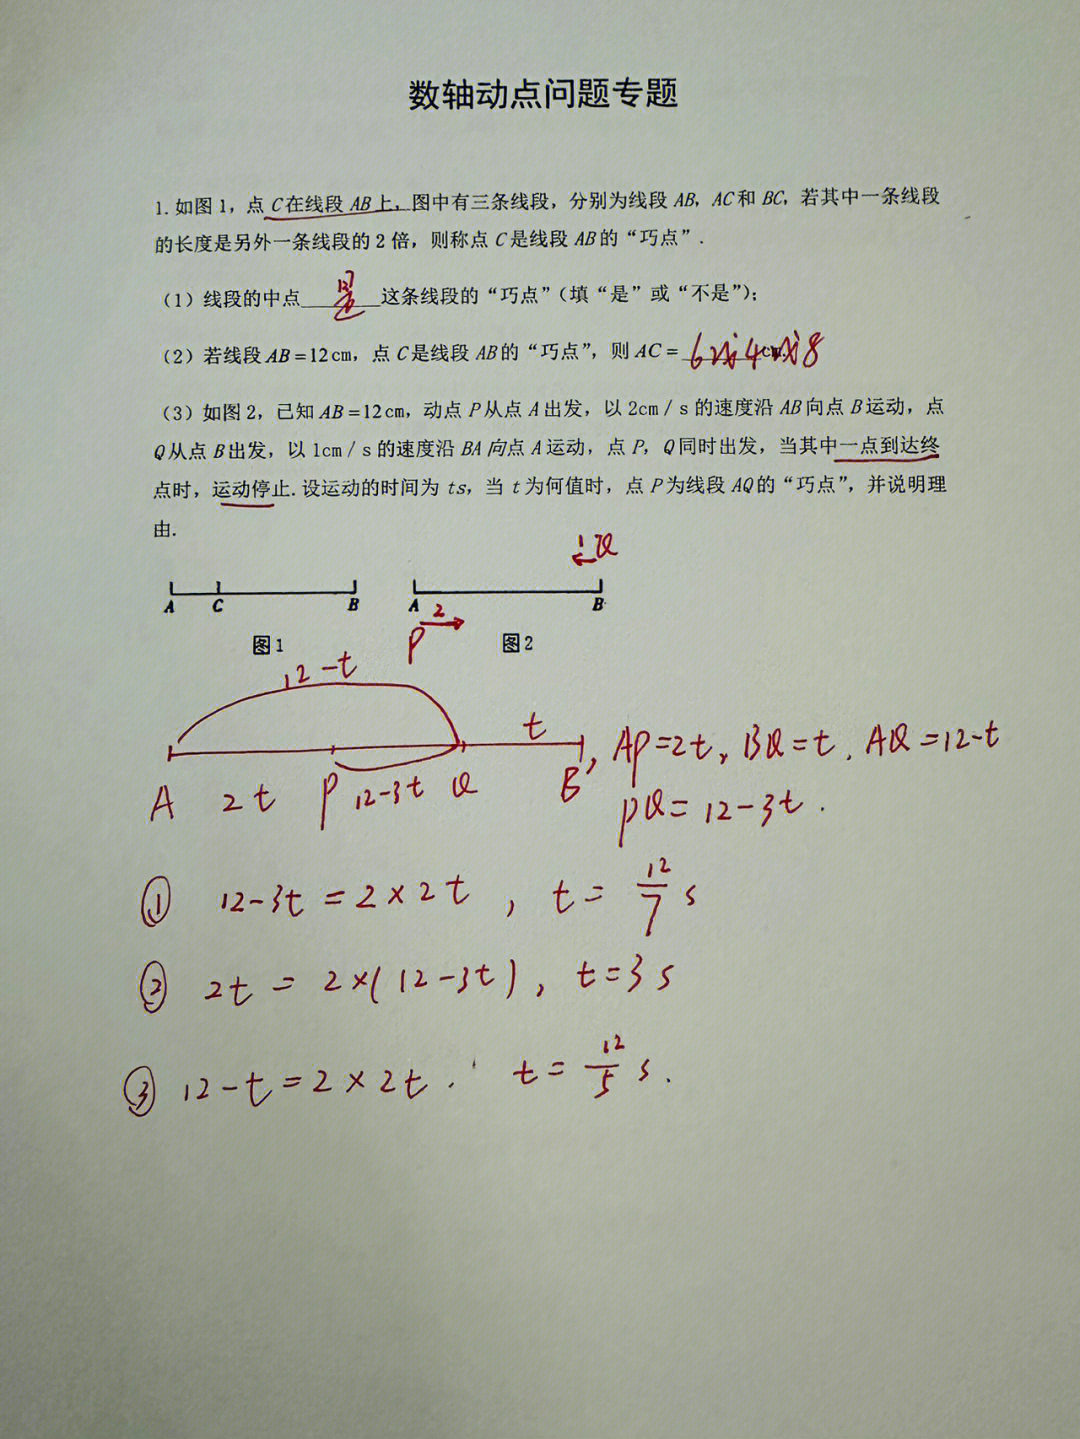 数轴动点问题专题
1. 如图1，点C在线段AB上，图中有三条线段，分别为线段AB，AC和BC，若其中一条线段
的长度是另外一条线段的2倍，则称点C是线段AB的“巧点”.
（1）线段的中点 是 这条线段的“巧点”（填“是”或“不是”）；
（2）若线段AB=12cm，点C是线段AB的“巧点”，则AC= 6或4或8 cm.
（3）如图2，已知AB=12cm，动点P从点A出发，以2cm/s的速度沿AB向点B运动，点
Q从点B出发，以1cm/s的速度沿BA向点A运动，点P，Q同时出发，当其中一点到达终
点时，运动停止.设运动的时间为ts，当t为何值时，点P为线段AQ的“巧点”，并说明理
由.
1 Q
A C B A 2 B
图1 P 图2
12-t
t , AP=2t, BQ=t, AQ=12-t
A 2t P 12-3t Q B
PQ=12-3t.
① 12-3t=2×2t, t=12/7 s
② 2t=2×(12-3t), t=3s
③ 12-t=2×2t. t=12/5 s.